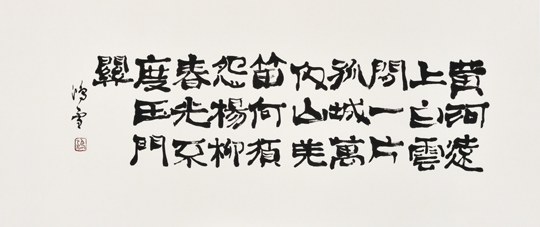 黄河遠
上白雲
間一片
孤城萬
仞山羌
笛何須
怨楊柳
春光不
度玉門
關
鴻雪